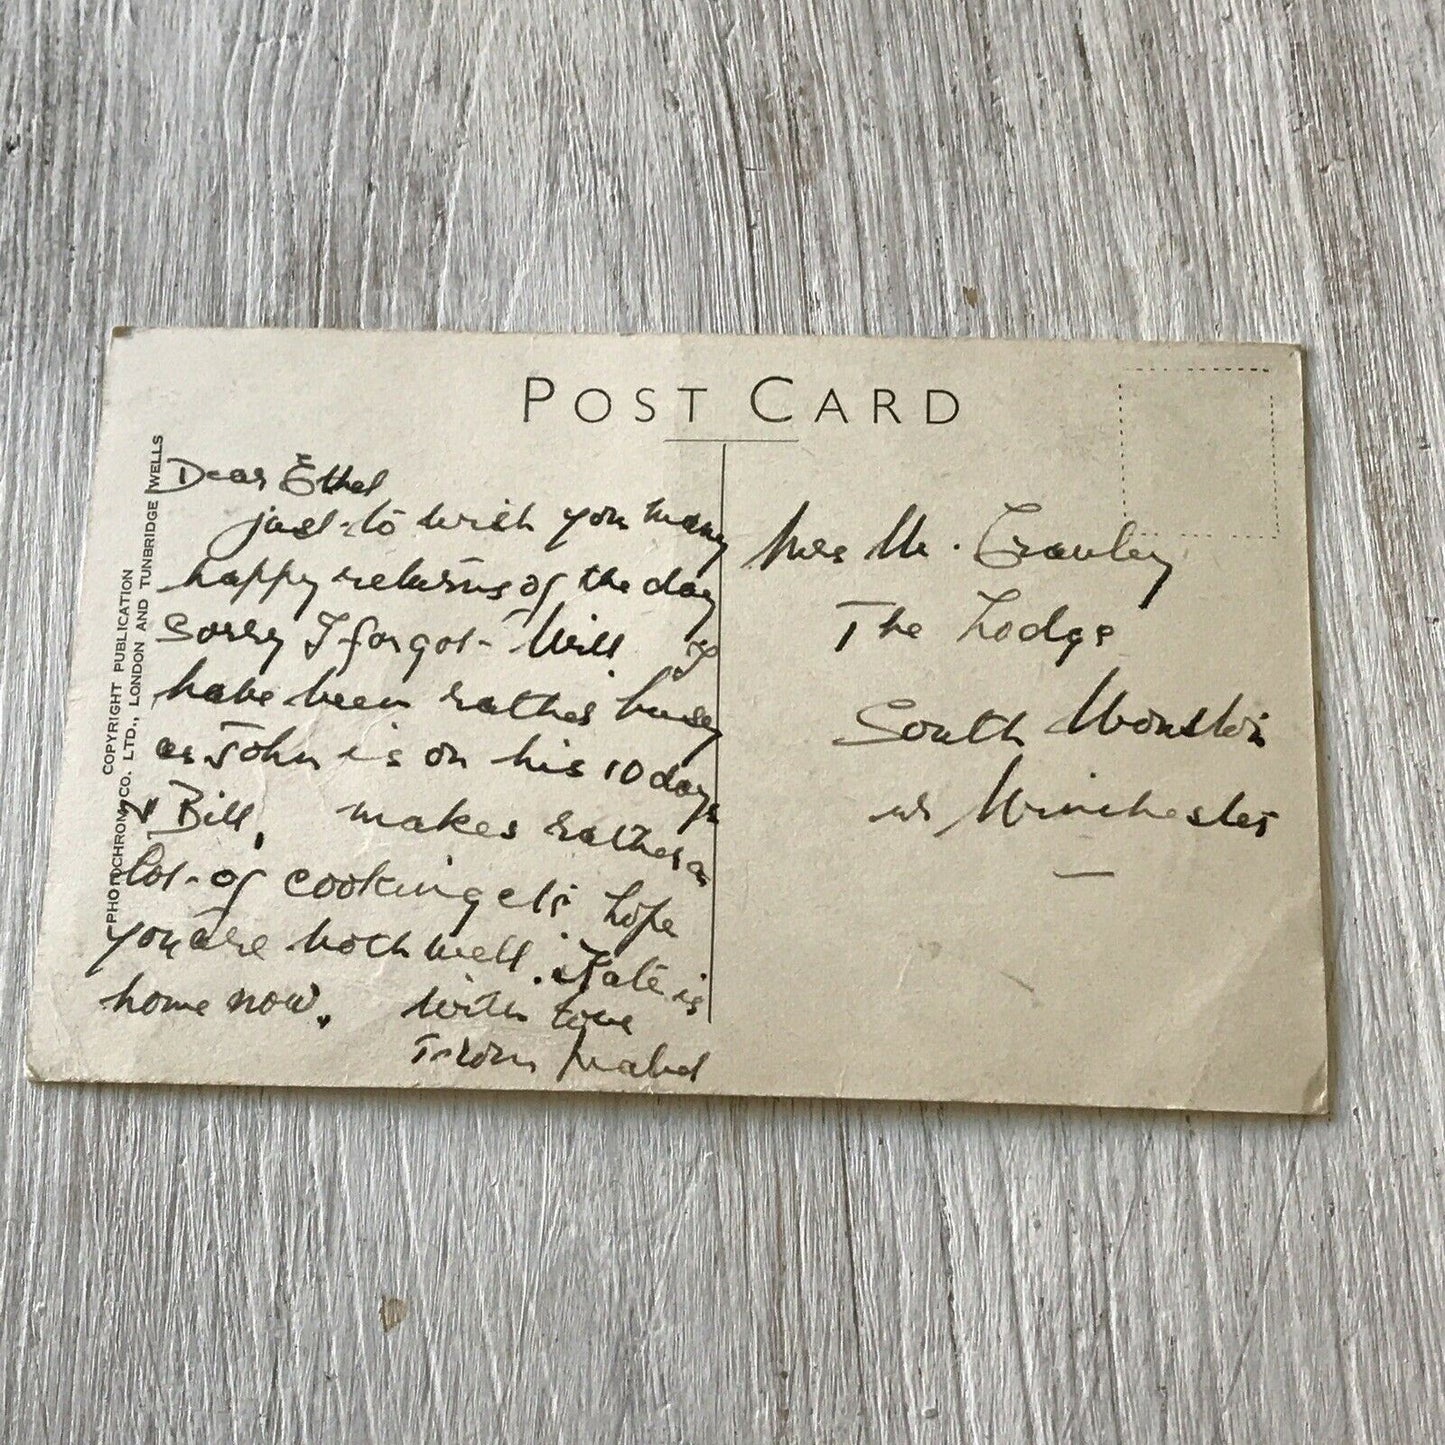 POST CARD
COPYRIGHT PUBLICATION
PHOTOCHROM CO. LTD., LONDON AND TUNBRIDGE WELLS
Dear Ethel
just to wish you many
happy returns of the day
Sorry I forgot Will
have been rather busy
as John is on his 10 days
& Bill, makes rather a
lot of cooking etc hope
you are both well. Kate is
home now. With love
From Mabel
Mrs M. Crawley
The Lodge
South Wonston
nr Winchester